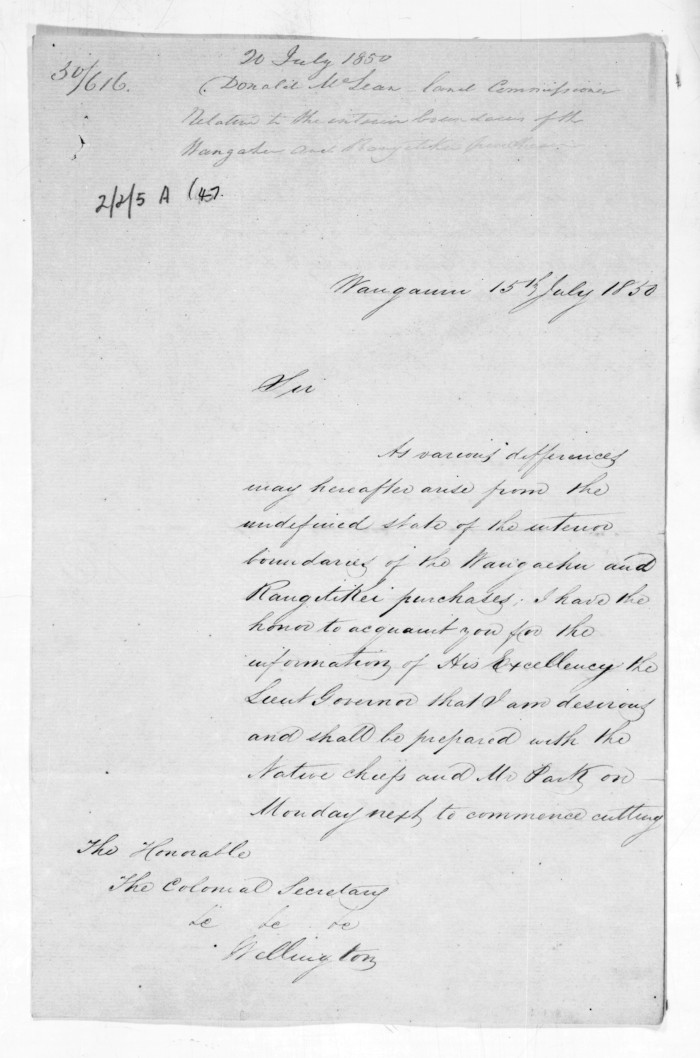 20 July 1850
50/616.
(Donald McLean land Commissioner
Relative to the interior boundaries of the
Wangaehu and Rangitikei purchases
2/2/5 A (4).
Wanganui 15th July 1850
Sir
As various differences
may hereafter arise from the
undefined state of the interior
boundaries of the Wangaehu and
Rangitikei purchases; I have the
honor to acquaint you for the
information of His Excellency the
Lieut Governor that I am desirous
and shall be prepared with the
Native chiefs and Mr Park on
Monday next to commence cutting
The Honorable
The Colonial Secretary
&c &c &c
Wellington